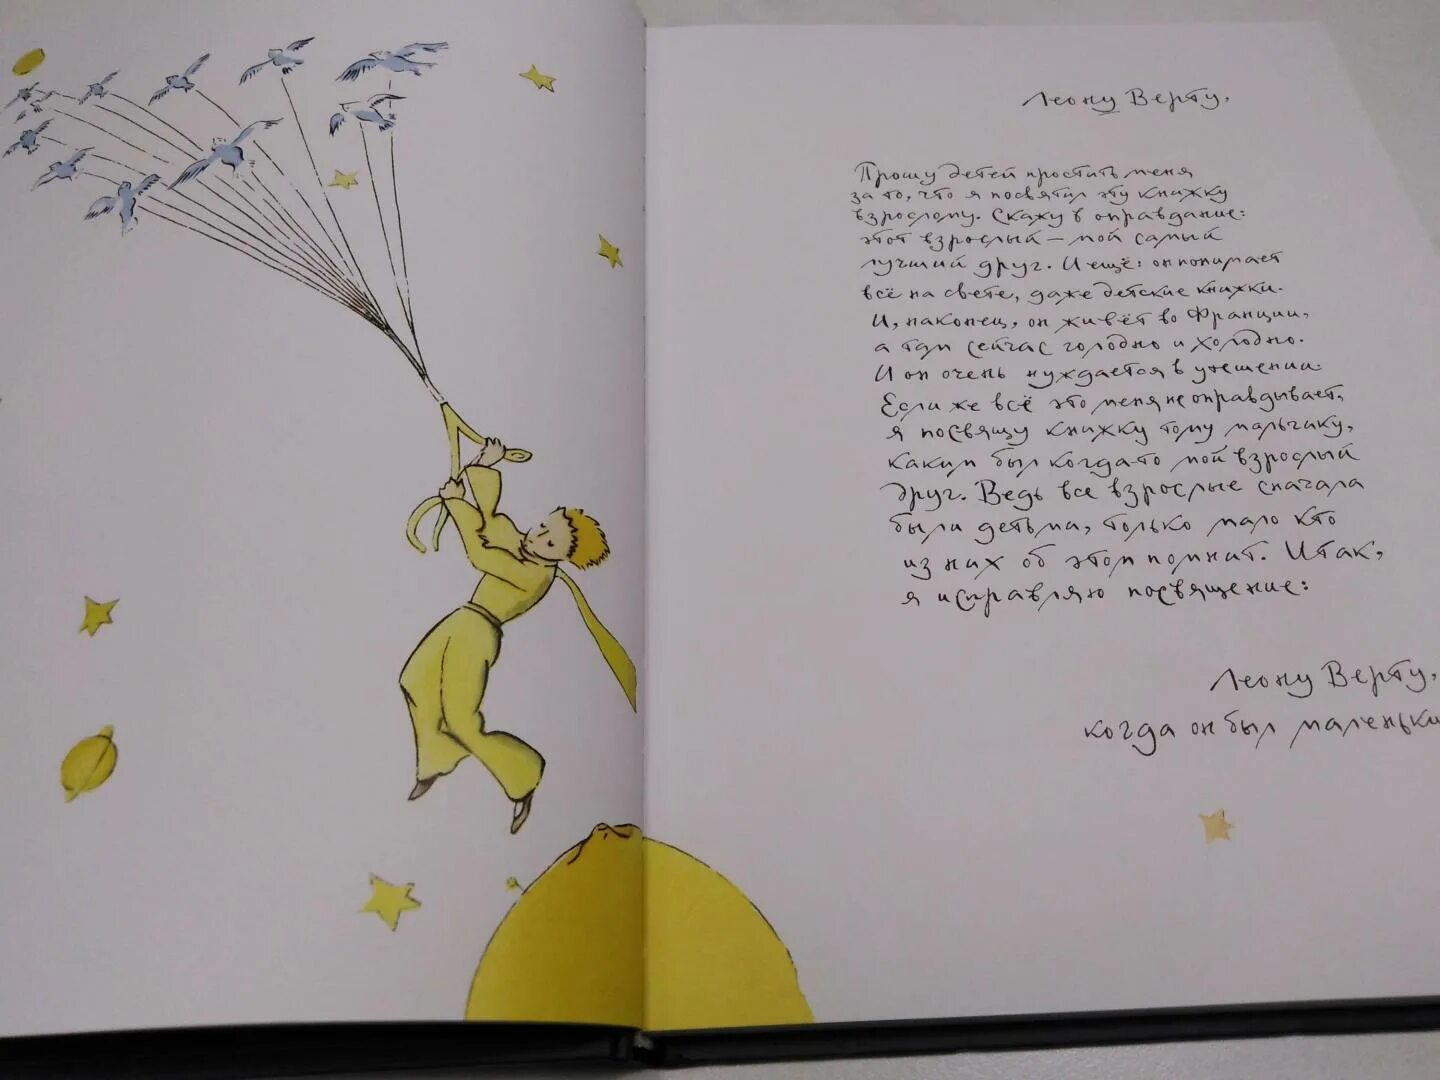 Леону Верту,
Прошу детей простить меня
за то, что я посвятил эту книжку
взрослому. Скажу в оправдание:
этот взрослый – мой самый
лучший друг. И ещё: он понимает
всё на свете, даже детские книжки.
И, наконец, он живёт во Франции,
а там сейчас голодно и холодно.
И он очень нуждается в утешении.
Если же всё это меня не оправдывает,
я посвящу книжку тому мальчику,
каким был когда-то мой взрослый
друг. Ведь все взрослые сначала
были детьми, только мало кто
из них об этом помнит. Итак,
я исправляю посвящение:
Леону Верту,
когда он был маленьки